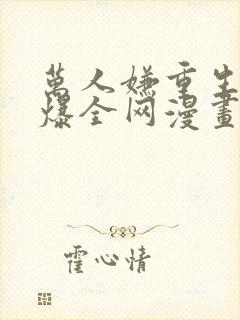 萬人嫌重生
爆全网漫畫
霍心情